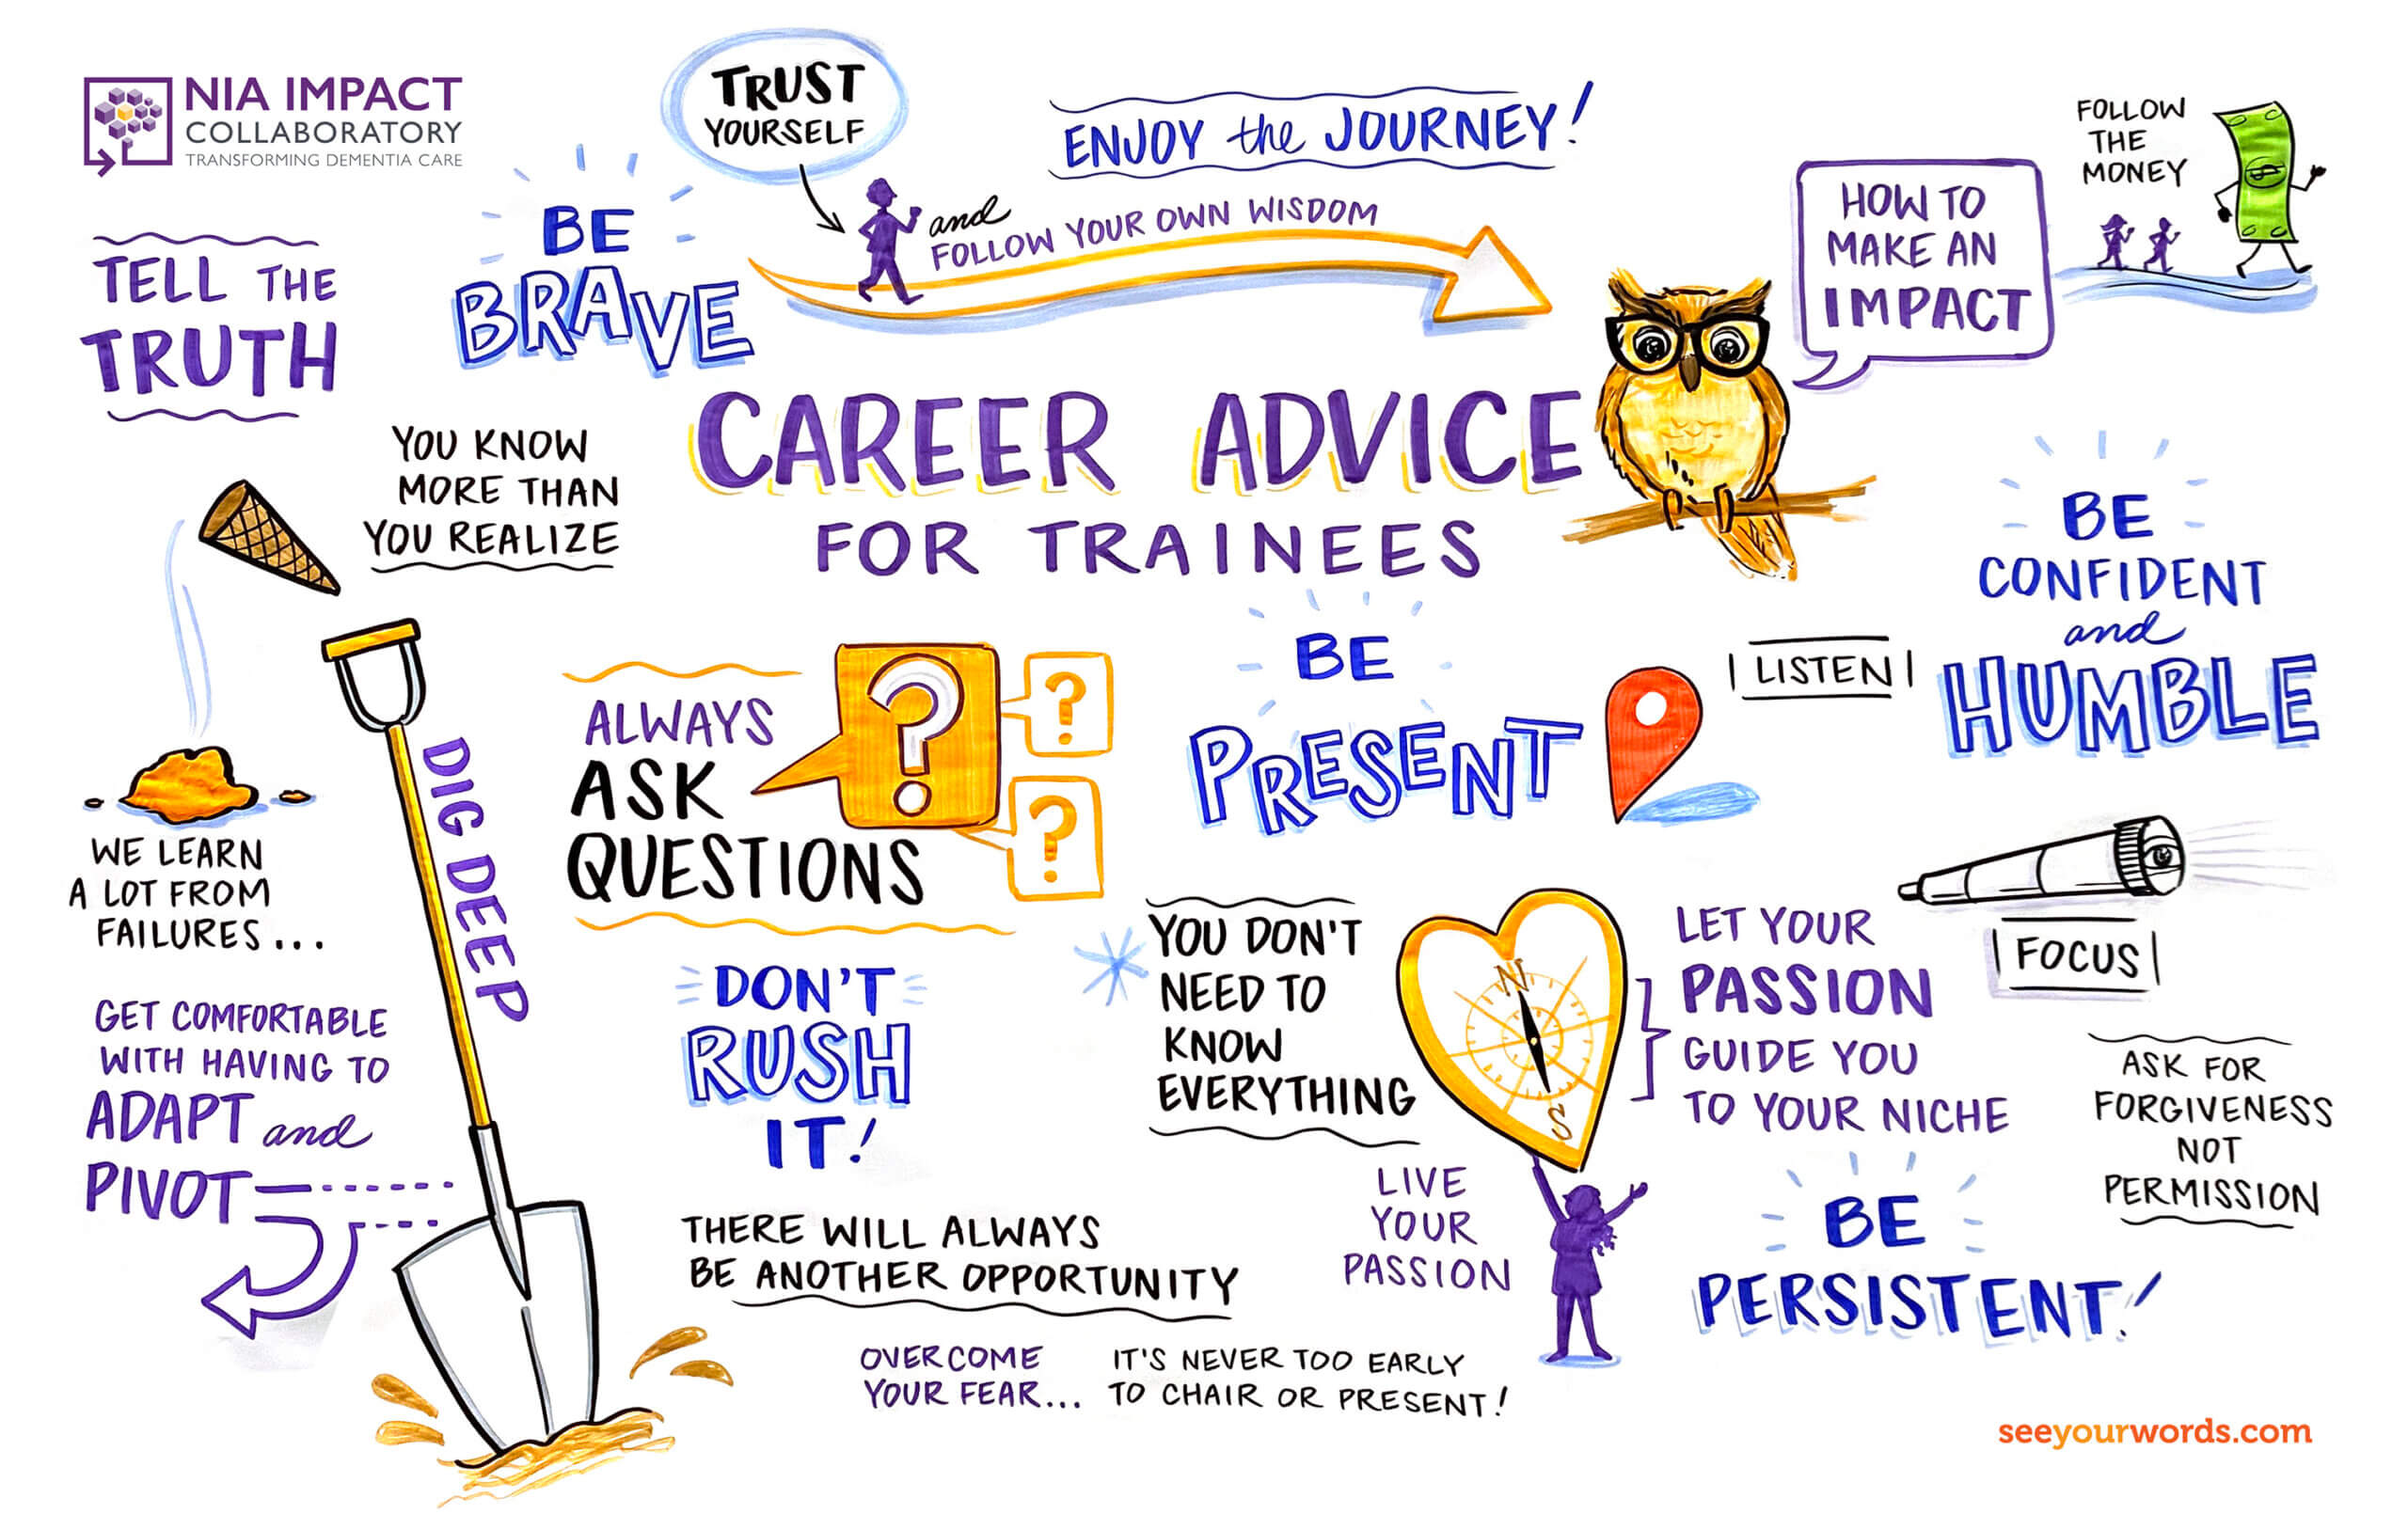 NIA IMPACT
COLLABORATORY
TRANSFORMING DEMENTIA CARE
TRUST
YOURSELF
and
FOLLOW YOUR OWN WISDOM
ENJOY the JOURNEY!
FOLLOW
THE
MONEY
HOW TO
MAKE AN
IMPACT
TELL THE
TRUTH
BE
BRAVE
CAREER ADVICE
FOR TRAINEES
YOU KNOW
MORE THAN
YOU REALIZE
BE
CONFIDENT
and
HUMBLE
LISTEN
BE
PRESENT
ALWAYS
ASK
QUESTIONS
?
?
?
DIG DEEP
WE LEARN
A LOT FROM
FAILURES...
GET COMFORTABLE
WITH HAVING TO
ADAPT and
PIVOT
DON'T
RUSH
IT!
YOU DON'T
NEED TO
KNOW
EVERYTHING
N
S
LET YOUR
PASSION
GUIDE YOU
TO YOUR NICHE
FOCUS
ASK FOR
FORGIVENESS
NOT
PERMISSION
LIVE
YOUR
PASSION
BE
PERSISTENT!
THERE WILL ALWAYS
BE ANOTHER OPPORTUNITY
OVERCOME
YOUR FEAR...
IT'S NEVER TOO EARLY
TO CHAIR OR PRESENT!
seeyourwords.com